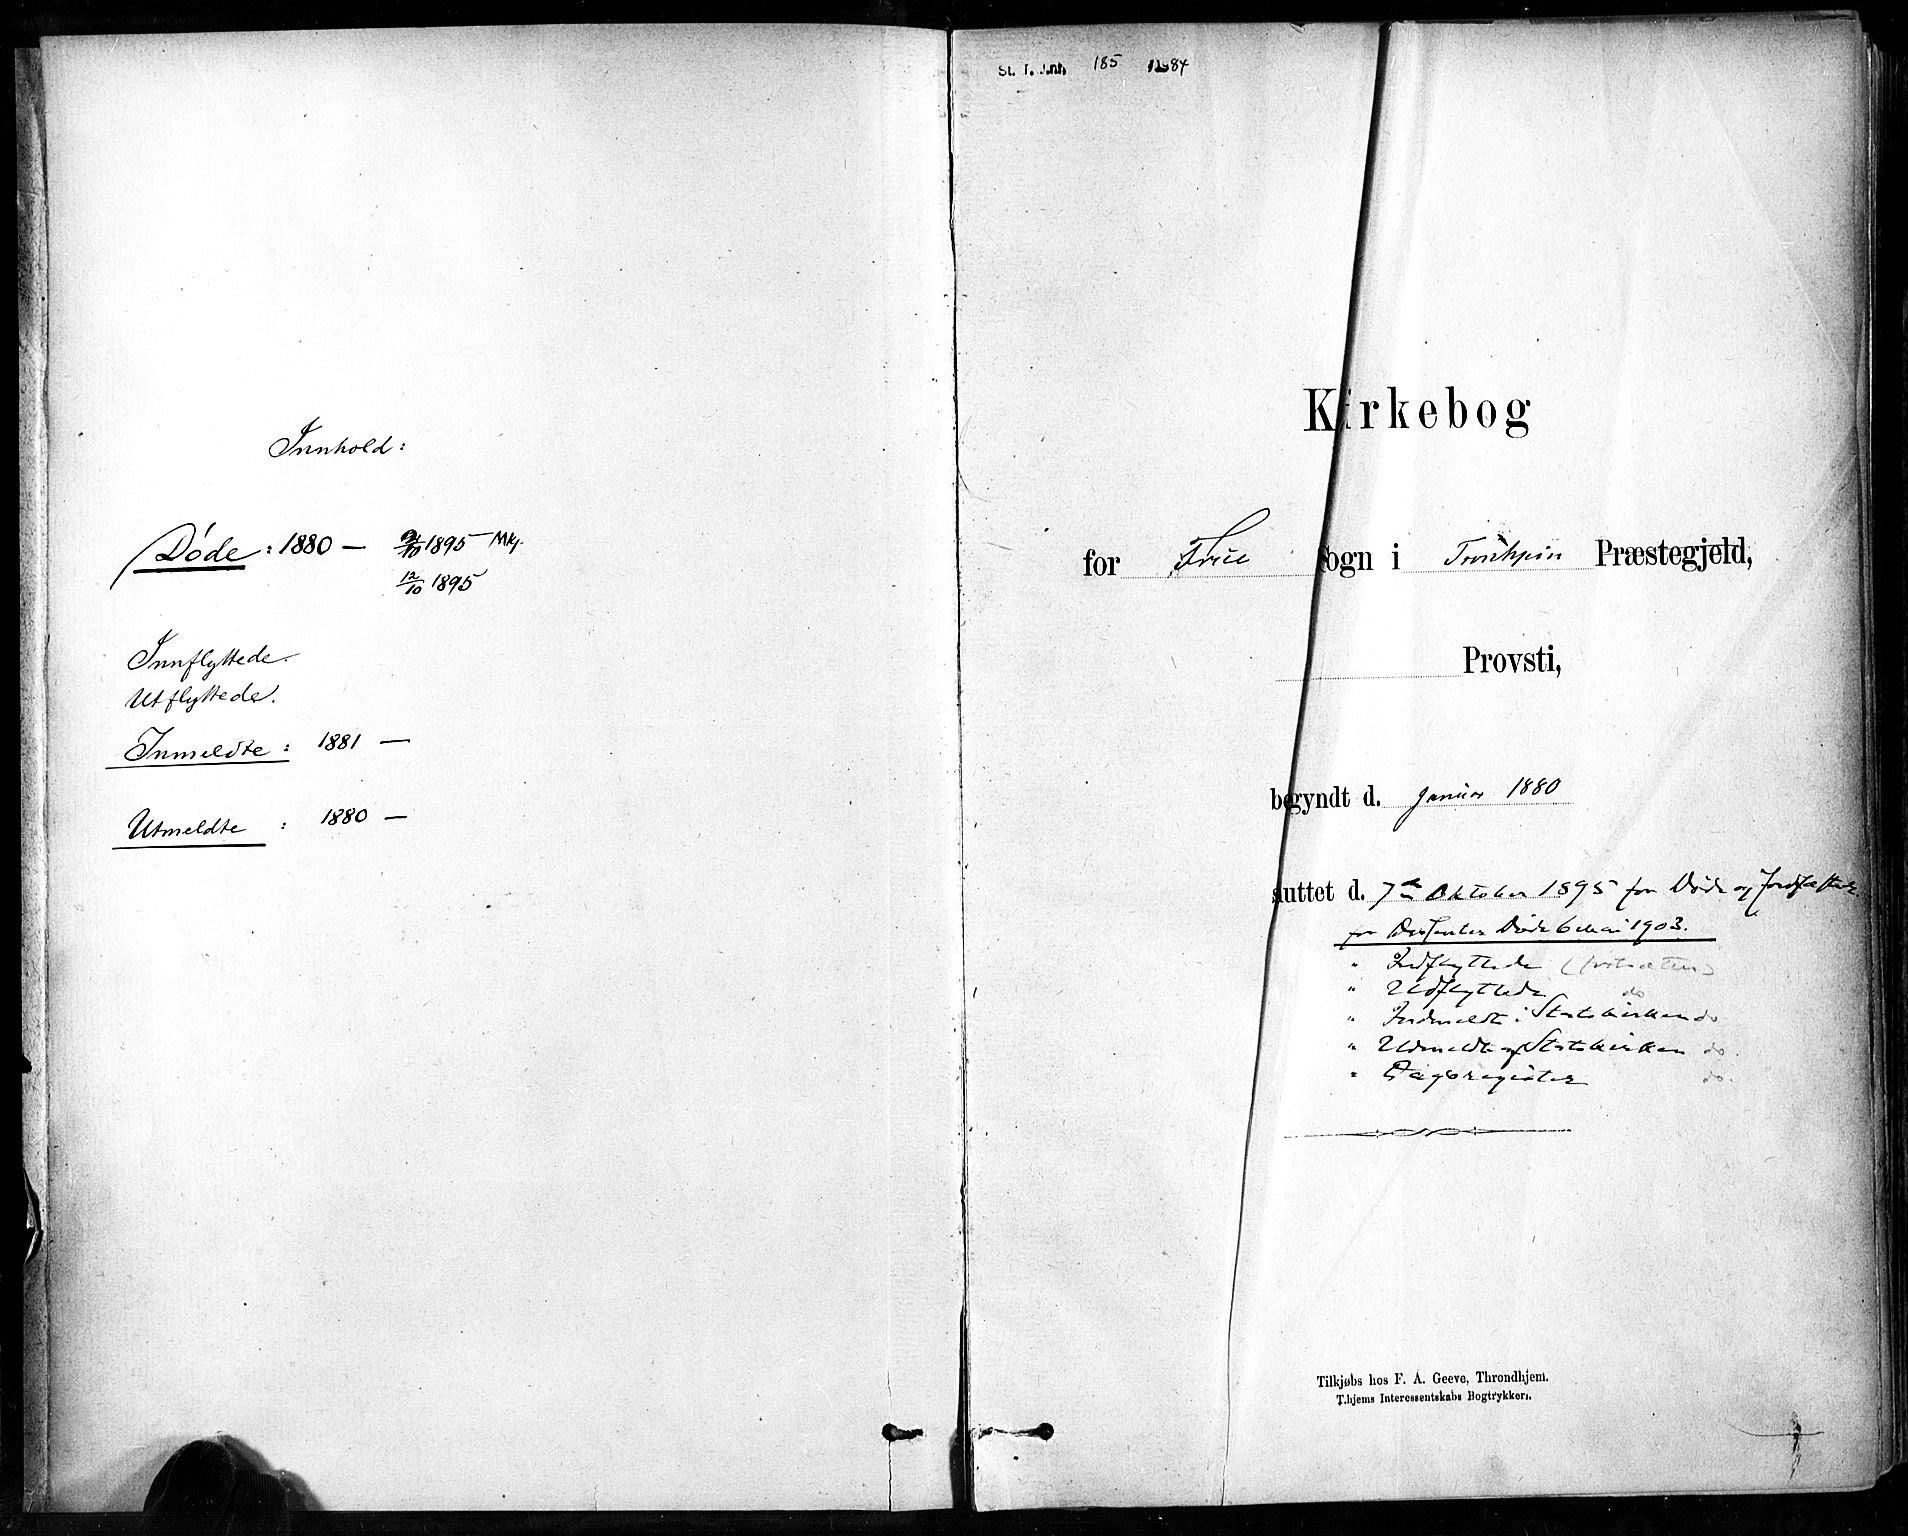 Innhold:
Døde : 1880 — 9/10 1895 Mkj.
12/10 1895
Innflyttede.
Utflyttede.
Innmeldte : 1881 —
Utmeldte : 1880 —
St. T. J.nr. 185 1984
Kirkebog
for Frue Sogn i Præstegjeld,
Provsti,
begyndt d. Januar 1880
sluttet d. 7de Oktober 1895 for Døde og Jordfæstede.
for Dissenter Døde 6 Mai 1903.
" Indflyttede (fortsættes)
" Udflyttede do
" Indmeldte i Statskirken do
" Udmeldte af Statskirken do.
" Dagsregister do.
Tilkjøbs hos F. A. Geeve, Throndhjem.
T.hjems Interessentskabs Bogtrykkeri.